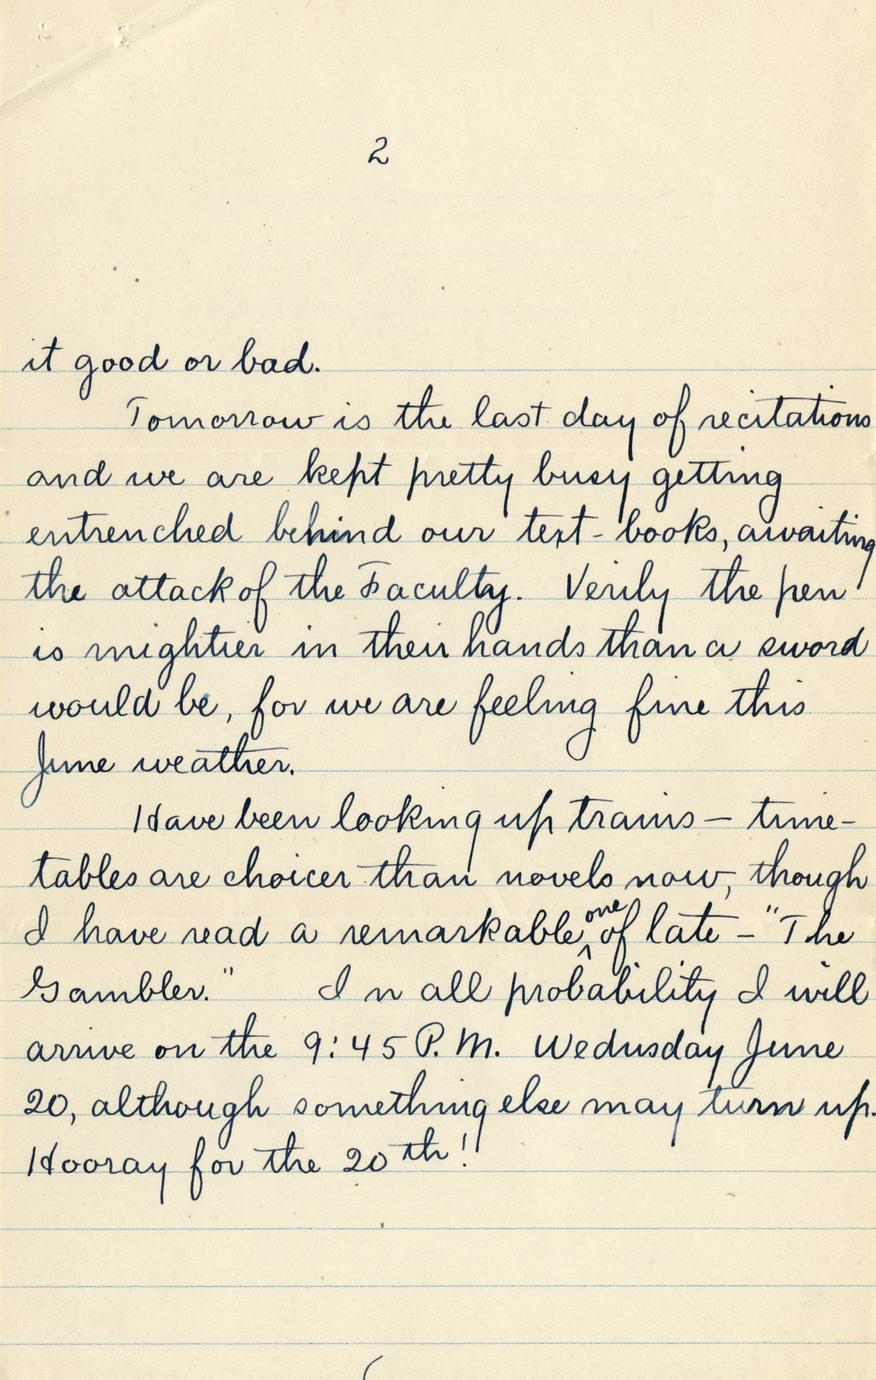 2
it good or bad.
Tomorrow is the last day of recitations
and we are kept pretty busy getting
entrenched behind our text-books, awaiting
the attack of the Faculty. Verily the pen
is mightier in their hands than a sword
would be, for we are feeling fine this
June weather.
Have been looking up trains – time-
tables are choicer than novels now, though
I have read a remarkable one of late – "The
Gambler." In all probability I will
arrive on the 9:45 P.M. Wedusday June
20, although something else may turn up.
Hooray for the 20th!